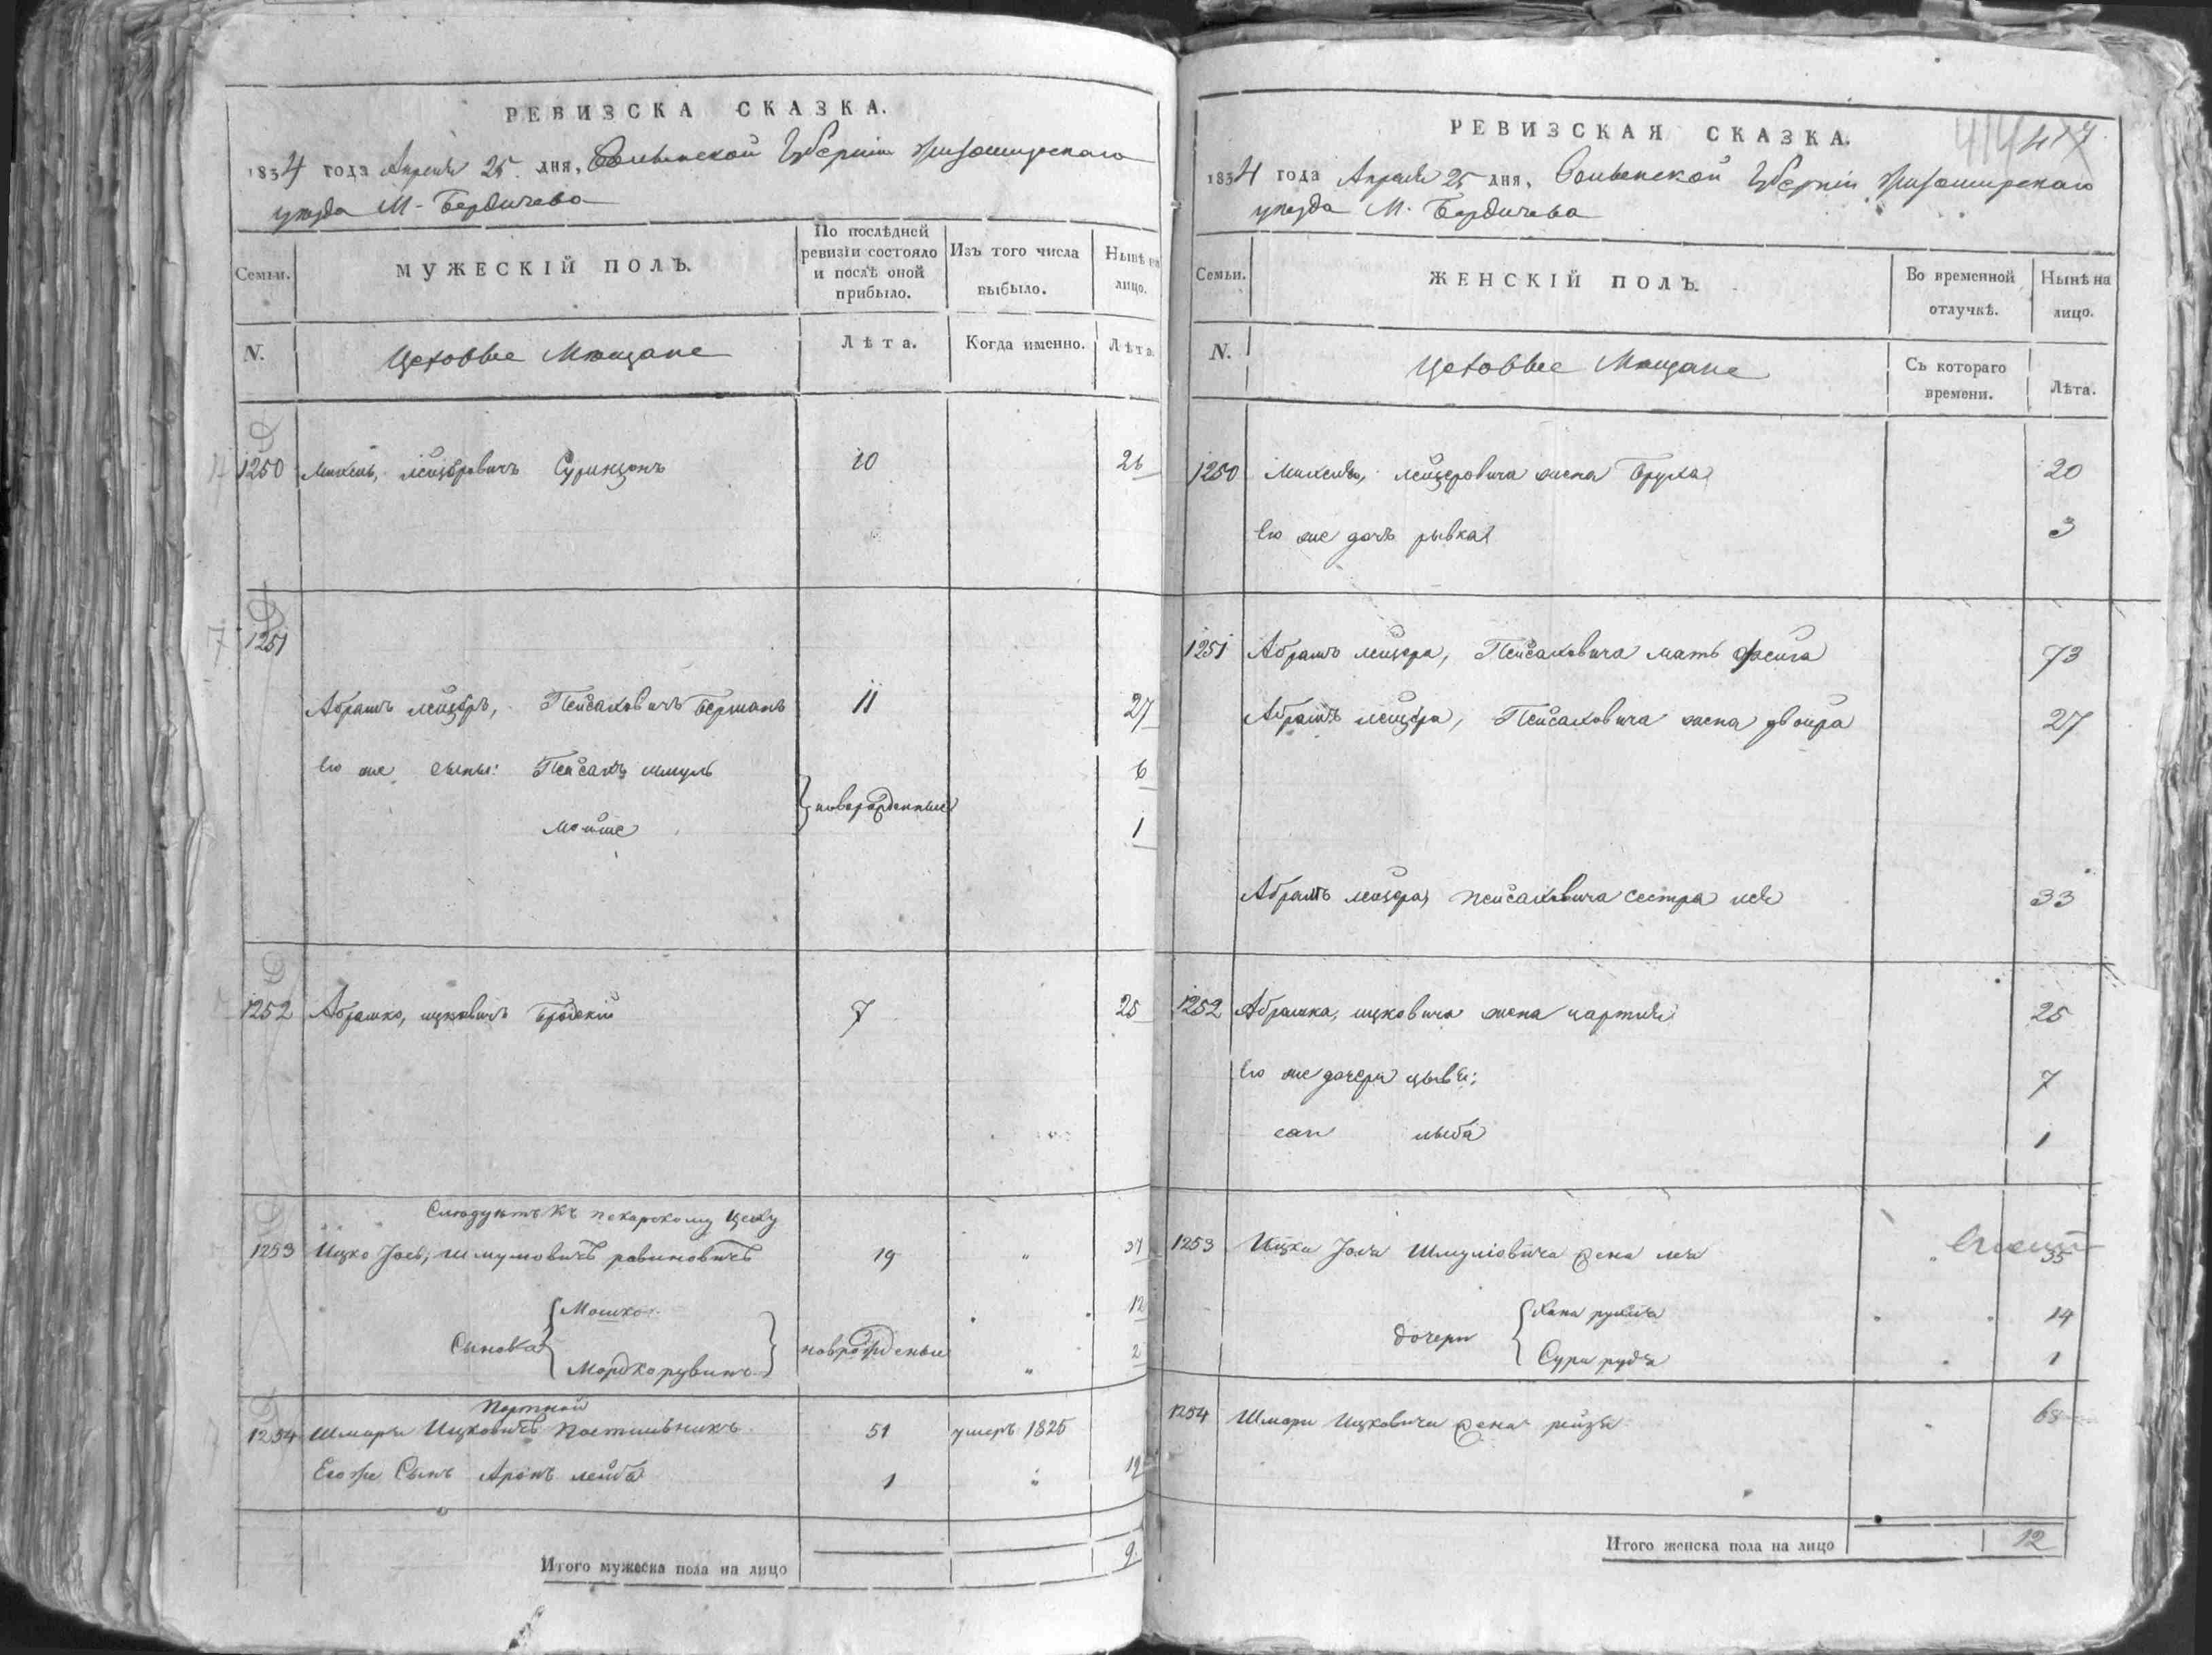 РЕВИЗСКА СКАЗКА.
1834 года Апреля 25 дня, Волынской Губернии Житомирскаго
уезда М. Бердичева
Семьи.
МУЖЕСКІЙ ПОЛЪ.
По послѣдней ревизіи состояло и послѣ оной прибыло.
Изъ того числа выбыло.
Нынѣ на лицо.
N.
Цеховые Мещане
Лѣта.
Когда именно.
Лѣта.
1250 Михель, лейзеровичъ 10 26
1251
Абрамъ лейзеръ, Пейсаховичъ Берманъ 11 27
Его же сыны: Пейсахъ шмуль 6
новорожденные
мойше 1
1252 Абрамко, ицковичъ Бродский 7 25
Следуютъ къ пекарскому Цеху
1253 Ицко Іось, Шмулювичъ рабиновичъ 19 " 31
Мошко 12
Сыновя новрожденые
Мордко рувинъ " 2
Портной
1254 Шмаря Ицковичъ Постильникъ 51 умеръ 1825
Его же Сынъ Аронъ лейба 1 " 19
Итого мужеска пола на лицо 9.
РЕВИЗСКАЯ СКАЗКА.
414 417
1834 года Апреля 25 дня, Волынской Губерніи Житомирскаго
уезда М. Бердичева
Семьи.
ЖЕНСКІЙ ПОЛЪ.
Во временной отлучкѣ.
Нынѣ на лицо.
N.
Цеховые Мещане
Съ котораго времени.
Лѣта.
1250 Михеля, лейзеровича жена Бруха 20
Его же дочь рывка 3
1251 Абрамъ лейзера, Пейсаховича мать фейга 73
Абрамъ лейзера, Пейсаховича жена двойра 27
Абрамъ лейзера, пейсаховича сестра 33
1252 Абрамка, ицковича жена 25
Его же дочери цывья; 7
1
1253 Ицки Іося Шмуліовича жена лея " 35
Хана рухля 14
дочери
Сура рудя 1
1254 Шмари Ицковича жена рейзя 68
Итого женска пола на лицо 12